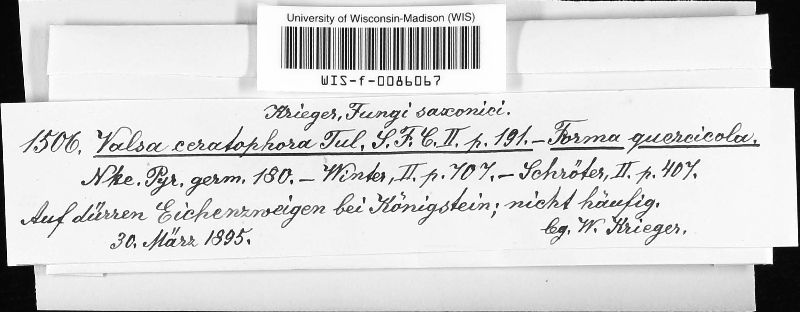 University of Wisconsin-Madison (WIS)
WIS-f-0086067
Krieger, Fungi saxonici.
1506. Valsa ceratophora Tul. S. F. C. II. p. 191. – Forma quercicola.
Nke. Pyr. germ. 180. – Winter, II. p. 707. – Schröter, II. p. 407.
Auf dürren Eichenzweigen bei Königstein; nicht häufig.
30. März 1895. lg. W. Krieger.